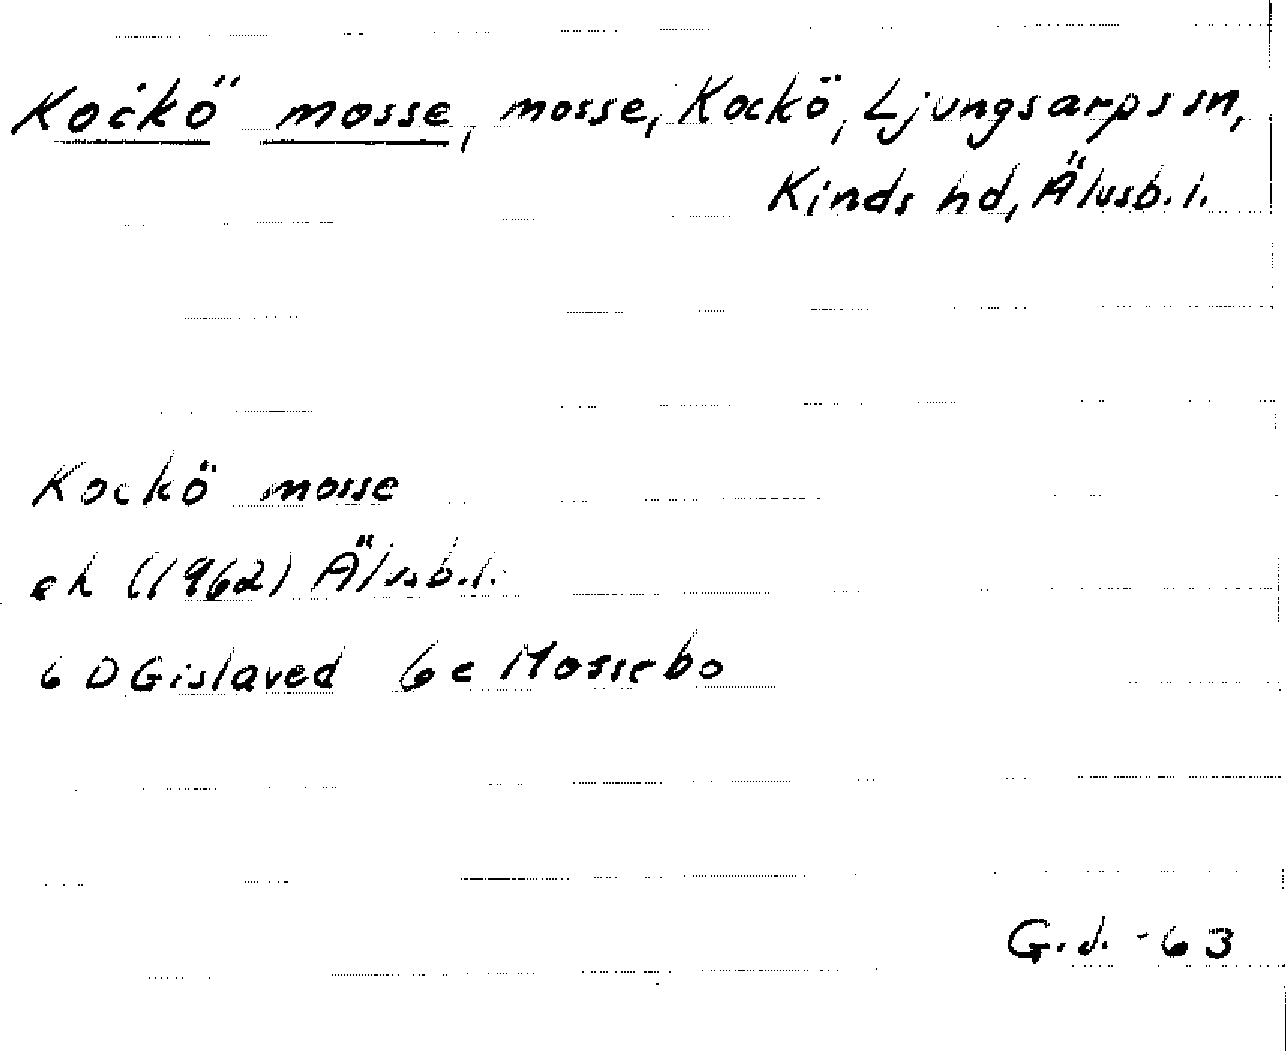 Kockö mosse, mosse, Kockö, Ljungsarps sn,
Kinds hd, Älvsb. l.
Kockö mosse
ek (1962) Älvsb. l.
6 D Gislaved 6c Mossebo
G. J. -63